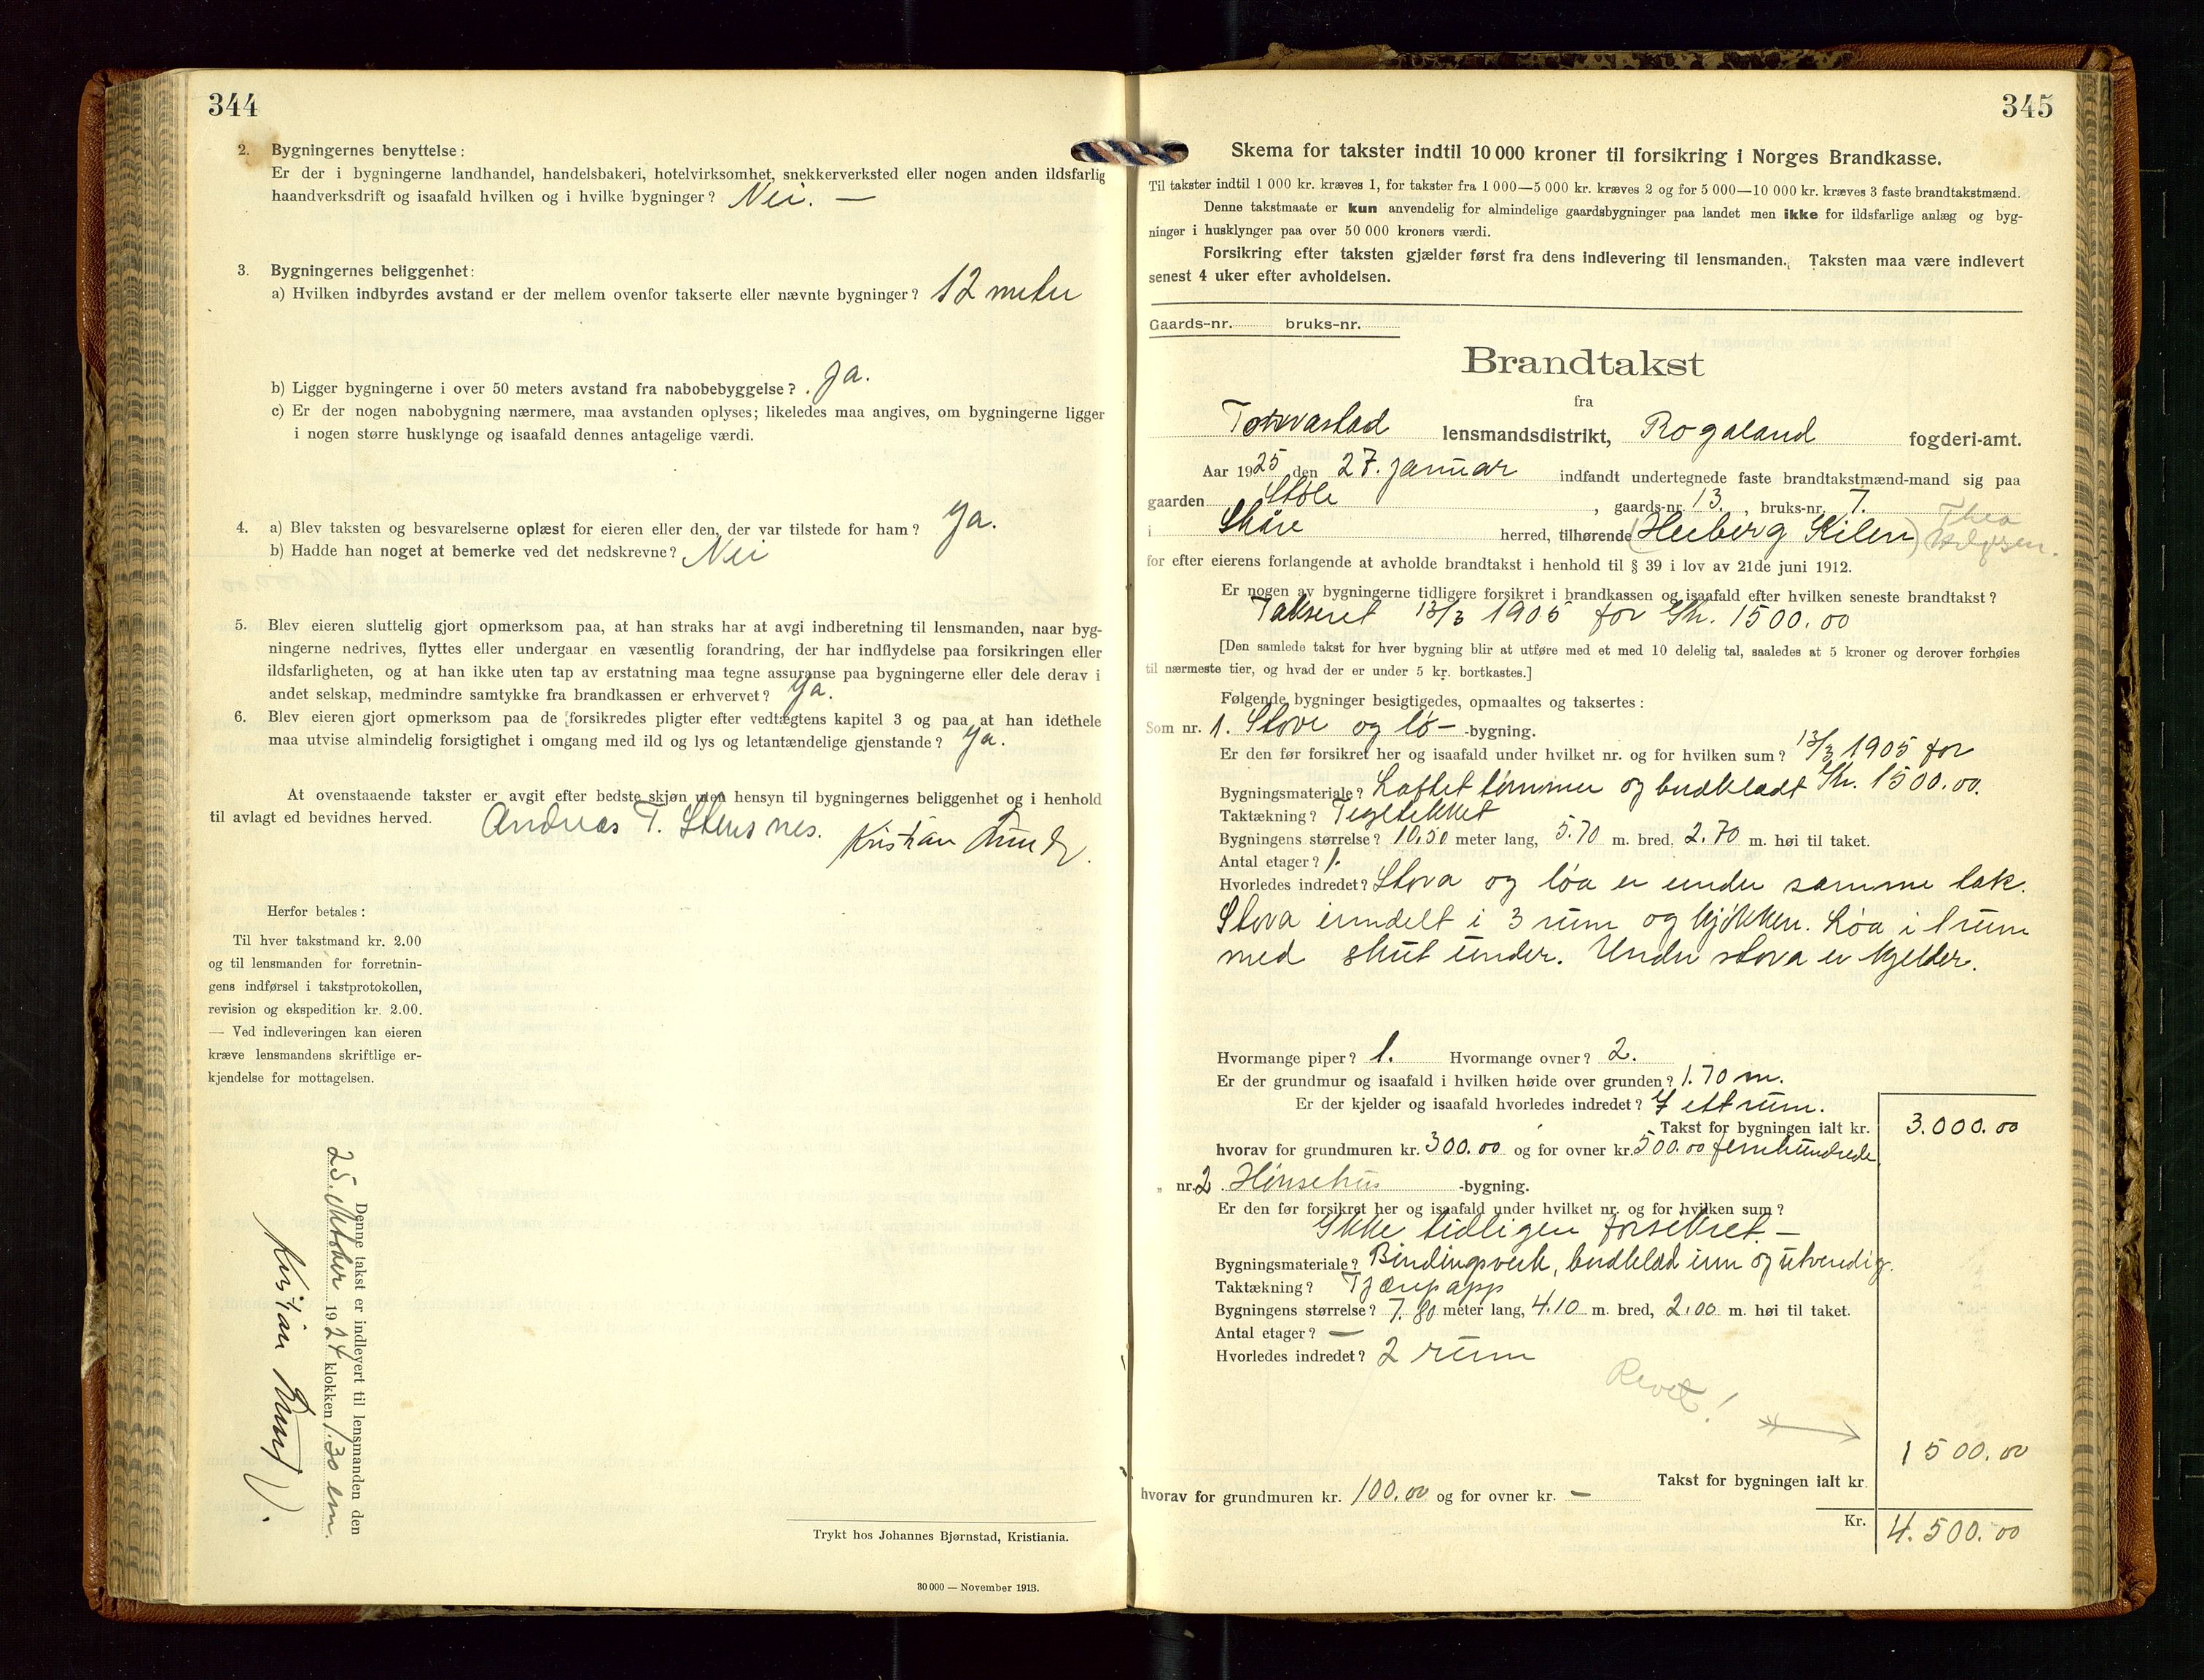 344
2. Bygningernes benyttelse:
Er der i bygningerne landhandel, handelsbakeri, hotelvirksomhet, snekkerverksted eller nogen anden ildsfarlig
haandverksdrift og isaafald hvilken og i hvilke bygninger? Nei. —
3. Bygningernes beliggenhet:
a) Hvilken indbyrdes avstand er der mellem ovenfor takserte eller nævnte bygninger? 12 meter
b) Ligger bygningerne i over 50 meters avstand fra nabobebyggelse? Ja.
c) Er der nogen nabobygning nærmere, maa avstanden oplyses; likeledes maa angives, om bygningerne ligger
i nogen større husklynge og isaafald dennes antagelige værdi.
4. a) Blev taksten og besvarelserne oplæst for eieren eller den, der var tilstede for ham? Ja.
b) Hadde han noget at bemerke ved det nedskrevne? Nei
5. Blev eieren sluttelig gjort opmerksom paa, at han straks har at avgi indberetning til lensmanden, naar byg-
ningerne nedrives, flyttes eller undergaar en væsentlig forandring, der har indflydelse paa forsikringen eller
ildsfarligheten, og at han ikke uten tap av erstatning maa tegne assuranse paa bygningerne eller dele derav i
andet selskap, medmindre samtykke fra brandkassen er erhvervet? Ja.
6. Blev eieren gjort opmerksom paa de forsikredes pligter efter vedtægtens kapitel 3 og paa at han idethele
maa utvise almindelig forsigtighet i omgang med ild og lys og letantændelige gjenstande? Ja.
At ovenstaaende takster er avgit efter bedste skjøn uten hensyn til bygningernes beliggenhet og i henhold
til avlagt ed bevidnes herved. Andreas T. Stensnes. Kristian Lund.
Herfor betales:
Til hver takstmand kr. 2.00
og til lensmanden for forretnin-
gens indførsel i takstprotokollen,
revision og ekspedition kr. 2.00.
— Ved indleveringen kan eieren
kræve lensmandens skriftlige er-
kjendelse for mottagelsen.
Denne takst er indlevert til lensmanden den
25. Oktober 1924 klokken 1.30 em.
Kristian Lund
Trykt hos Johannes Bjørnstad, Kristiania.
30 000 — November 1913.
345
Skema for takster indtil 10 000 kroner til forsikring i Norges Brandkasse.
Til takster indtil 1 000 kr. kræves 1, for takster fra 1 000—5 000 kr. kræves 2 og for 5 000—10 000 kr. kræves 3 faste brandtakstmænd.
Denne takstmaate er kun anvendelig for almindelige gaardsbygninger paa landet men ikke for ildsfarlige anlæg og byg-
ninger i husklynger paa over 50 000 kroners værdi.
Forsikring efter taksten gjælder først fra dens indlevering til lensmanden. Taksten maa være indlevert
senest 4 uker efter avholdelsen.
Gaards-nr. bruks-nr.
Brandtakst
fra
Torvastad lensmandsdistrikt, Rogaland fogderi-amt.
Aar 1925 den 27. januar indfandt undertegnede faste brandtakstmænd-mand sig paa
gaarden Støle, gaards-nr. 13., bruks-nr. 7.
i Skåre herred, tilhørende (Heiberg Kilen) Thea
for efter eierens forlangende at avholde brandtakst i henhold til § 39 i lov av 21de juni 1912.
Er nogen av bygningerne tidligere forsikret i brandkassen og isaafald efter hvilken seneste brandtakst?
Takseret 13/3 1905 for Kr. 1500.00
[Den samlede takst for hver bygning blir at utføre med et med 10 delelig tal, saaledes at 5 kroner og derover forhøies
til nærmeste tier, og hvad der er under 5 kr. bortkastes.]
Følgende bygninger besigtigedes, opmaaltes og taksertes:
Som nr. 1. Stove og lø- -bygning.
Er den før forsikret her og isaafald under hvilket nr. og for hvilken sum? 13/3 1905 for
Bygningsmateriale? Laftet tømmer og budkledt Kr. 1500.00.
Taktækning? Tegltekket
Bygningens størrelse? 10.50 meter lang, 5.70 m. bred, 2.70 m. høi til taket.
Antal etager? 1.
Hvorledes indredet? Stova og løa er under samme tak.
Stova inndelt i 3 rum og kjøkken. Løa i 1 rum
med skut under. Under stova er kjelder.
Hvormange piper? 1. Hvormange ovner? 2.
Er der grundmur og isaafald i hvilken høide over grunden? 1.70 m.
Er der kjelder og isaafald hvorledes indredet? I ett rum.
Takst for bygningen ialt kr. 3.000.00
hvorav for grundmuren kr. 300.00 og for ovner kr. 500.00 femhundrede
„ nr. 2 Hønsehus -bygning.
Er den før forsikret her og isaafald under hvilket nr. og for hvilken sum?
Ikke tidligere forsikret. —
Bygningsmateriale? Bindingsverk, budkled inn og utvendig.
Taktækning? Tjærepapp
Bygningens størrelse? 7.80 meter lang, 4.10 m. bred, 2.00 m. høi til taket.
Antal etager? —
Hvorledes indredet? 2 rum
Revet!
1500.00
Takst for bygningen ialt kr.
hvorav for grundmuren kr. 100.00 og for ovner kr. —
Kr. 4.500.00